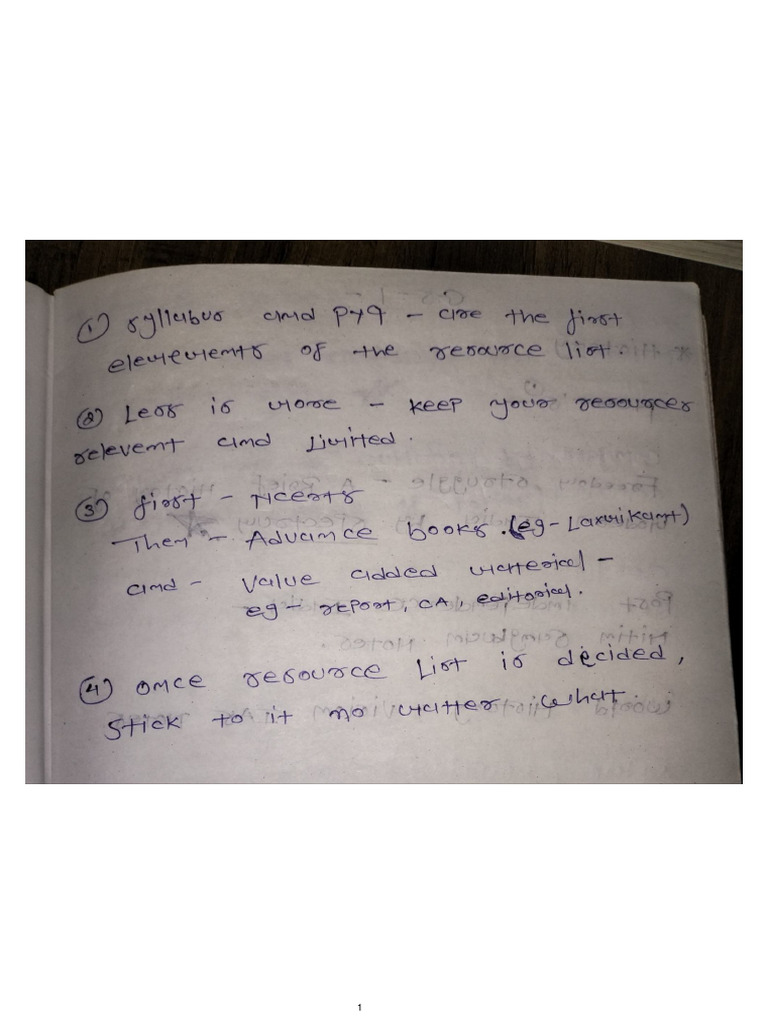 ① Syllabus and PYQ - are the first
elements of the resource list.
② Less is more - keep your resources
relevent and limited.
③ first - NCERTs
Then - Advance books. (eg - Laxmikant)
and - value added material -
eg - report, CA, editorial.
④ once resource list is decided,
stick to it no matter what
1